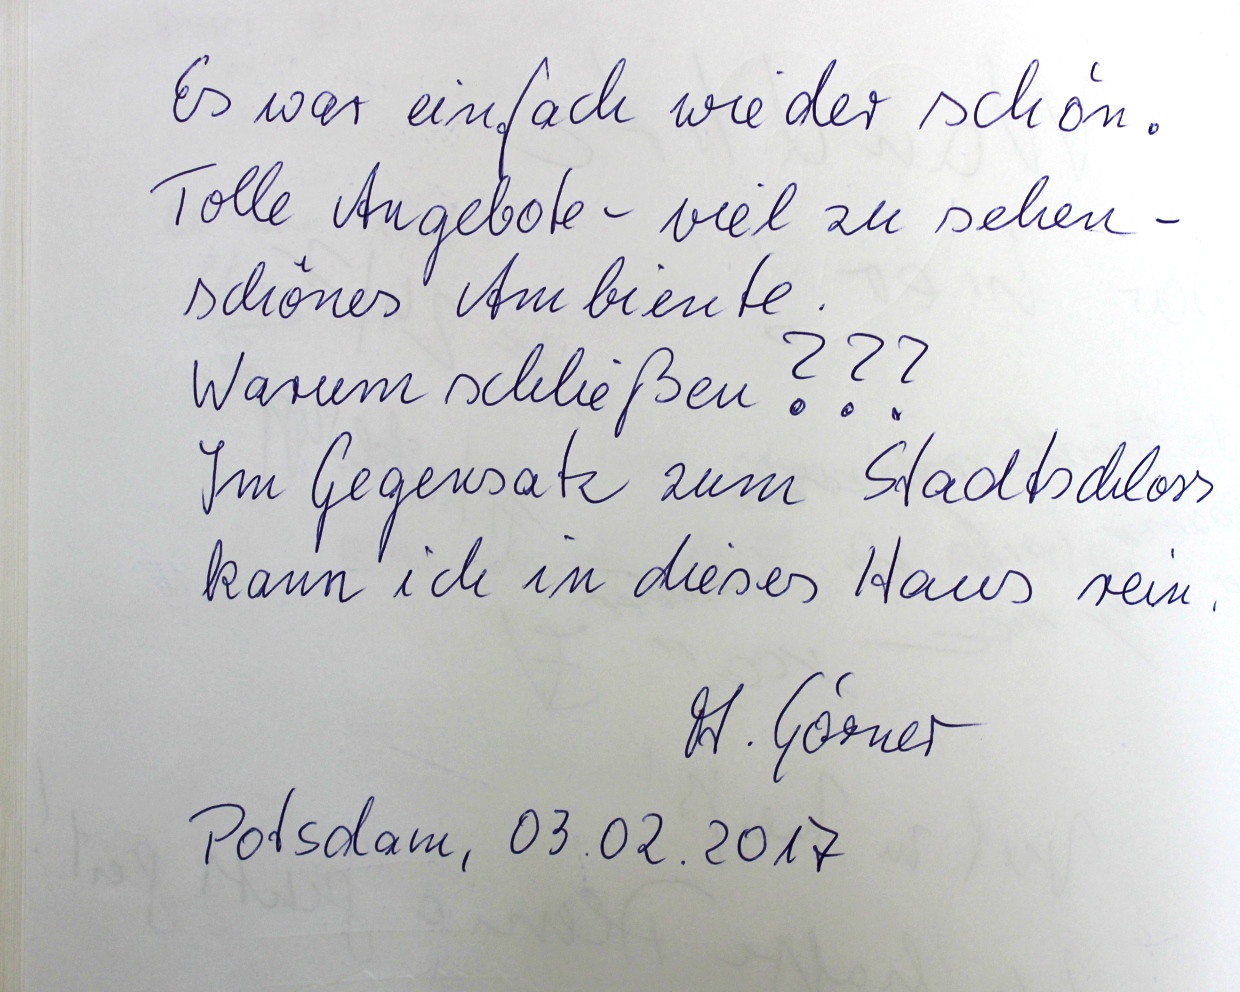 Es war einfach wieder schön.
Tolle Angebote - viel zu sehen -
schönes Ambiente.
Warum schließen ???
Im Gegensatz zum Stadtschloss
kann ich in dieses Haus rein.
H. Görner
Potsdam, 03.02.2017